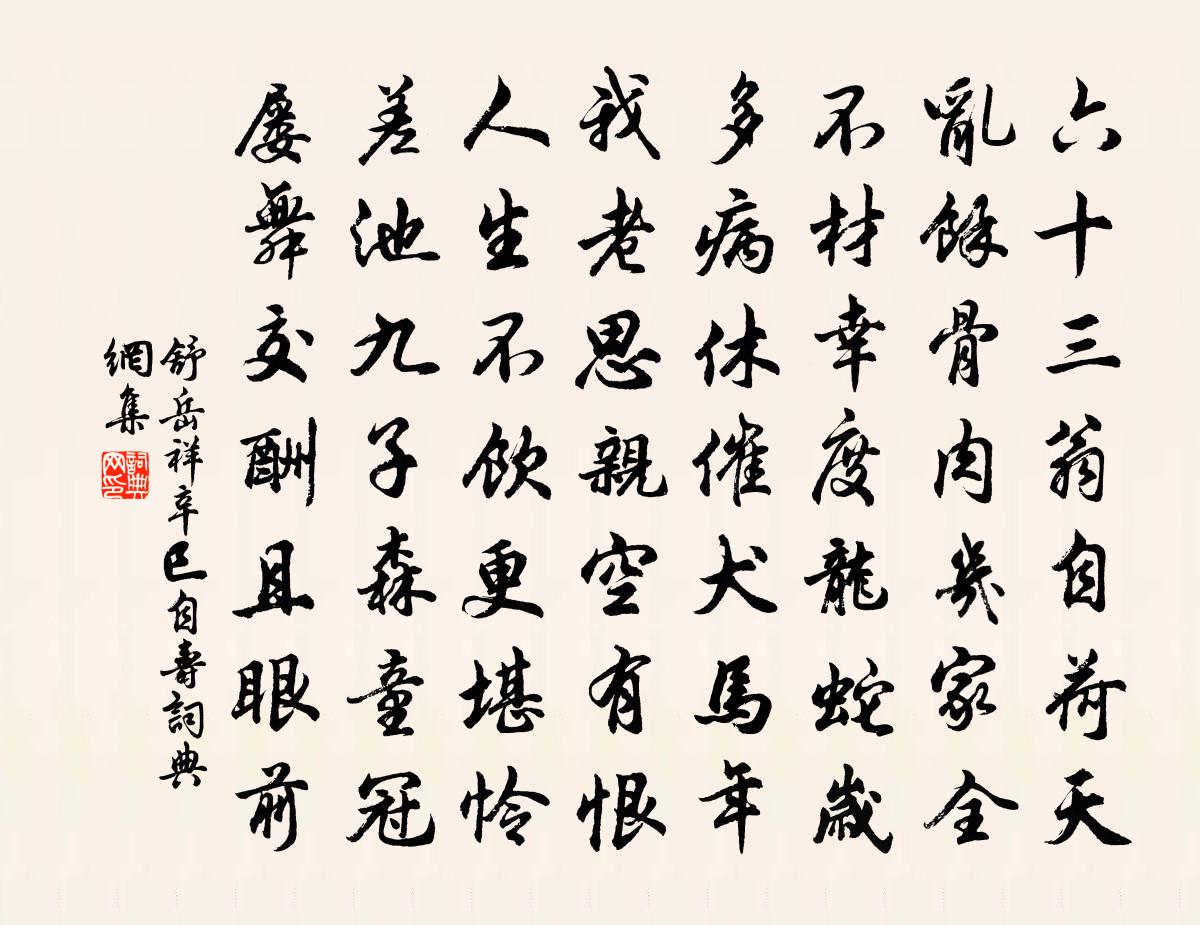 六十三翁自荷天
亂餘骨肉幾家全
不材幸度龍蛇歲
多病休催犬馬年
我老思親空有恨
人生不飲更堪憐
差池九子森童冠
屢舞交酬且眼前
舒岳祥辛巳自壽詞典
網集
詞典
网印